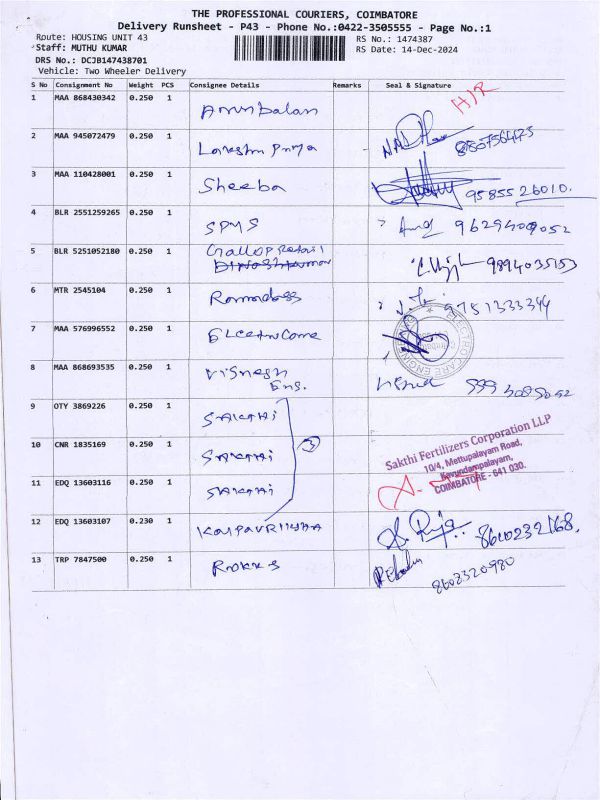 THE PROFESSIONAL COURIERS, COIMBATORE
Delivery Runsheet - P43 - Phone No.:0422-3505555 - Page No.:1
Route: HOUSING UNIT 43
RS No.: 1474387
Staff: MUTHU KUMAR
RS Date: 14-Dec-2024
DRS No.: DCJB147438701
Vehicle: Two Wheeler Delivery
S No Consignment No Weight PCS Consignee Details Remarks Seal & Signature
1 MAA 868430342 0.250 1 Arunbalan H/R
2 MAA 945072479 0.250 1 Lakshmi Priya
3 MAA 110428001 0.250 1 Sheeba 95855 26010.
4 BLR 2551259265 0.250 1 SPMS
5 BLR 5251052180 0.250 1 Gallop Retail
9894035153
6 MTR 2545104 0.250 1 Ramadoss 9751333344
7 MAA 576996552 0.250 1
8 MAA 868693535 0.250 1 Vignesh
Eng.
9 OTY 3869226 0.250 1 SAKTHI
10 CNR 1835169 0.250 1 SAKTHI 3
Sakthi Fertilizers Corporation LLP
10/4, Mettupalayam Road,
Kavundampalayam,
COIMBATORE - 641 030.
11 EDQ 13603116 0.250 1 SAKTHI
12 EDQ 13603107 0.230 1
13 TRP 7847500 0.250 1
8608320980